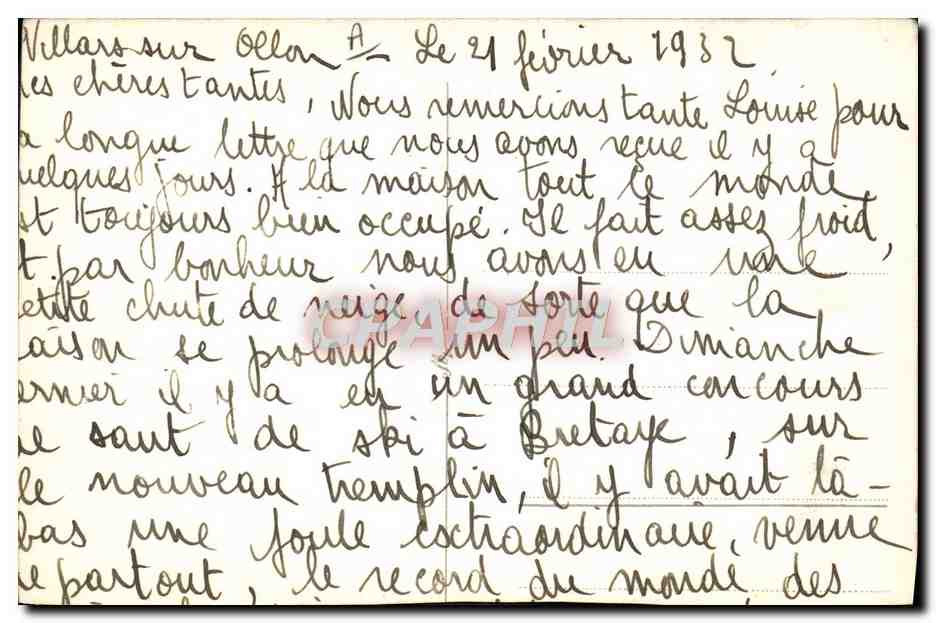 Villars sur Ollon A Le 21 février 1932
es chères tantes, Nous remercions tante Louise pour
a longue lettre que nous avons reçue il y a
uelques jours. A la maison tout le monde
st toujours bien occupé. Il fait assez froid,
t par bonheur nous avons eu une
etite chute de neige, de sorte que la
aison se prolonge un peu. Dimanche
ernier il y a eu un grand concours
de saut de ski à Bretaye, sur
le nouveau tremplin, il y avait là-
bas une foule extraordinaire, venue
de partout, le record du monde des
CPAPHIL